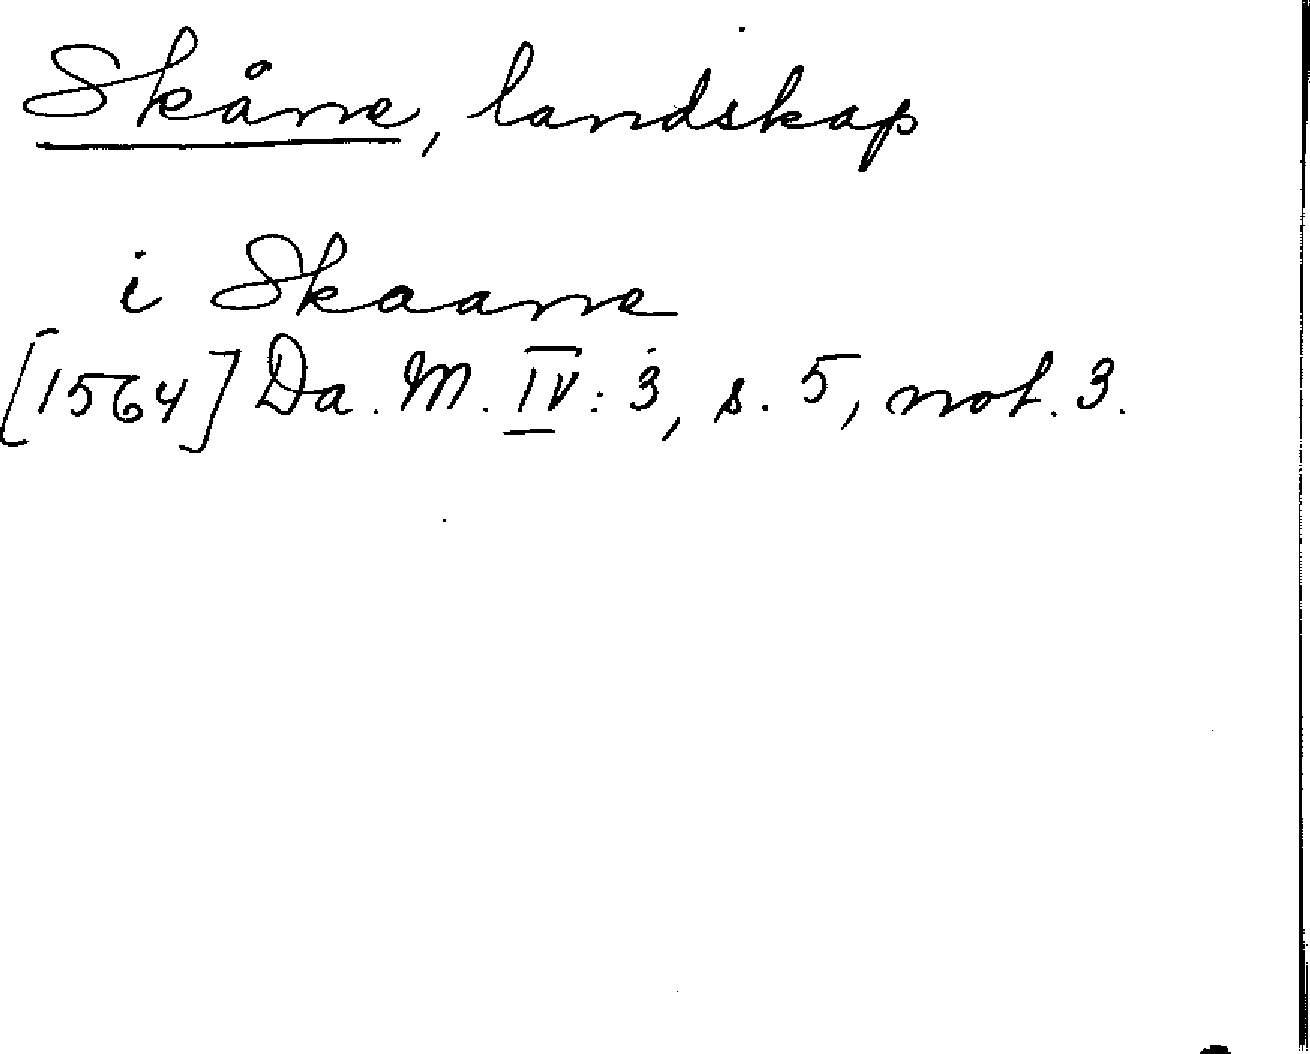 Skåne, landskap
i Skaane
[1564] Da. M. IV: 3, s. 5, not. 3.